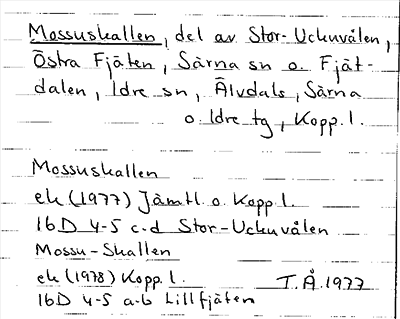 Mossuskallen, del av Stor-Uckuvålen,
Östra Fjäten, Särna sn o. Fjät-
dalen, Idre sn, Älvdals, Särna
o. Idre tg, Kopp. l.
Mossuskallen
ek (1977) Jämtl. o. Kopp l.
16D 4-5 c-d Stor-Uckuvålen
Mossu-Skallen
ek (1978) Kopp. l. T.Å. 1977
16D 4-5 a-b Lillfjäten